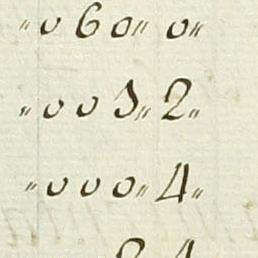 〃060〃0〃
〃003〃2〃
〃000〃4〃